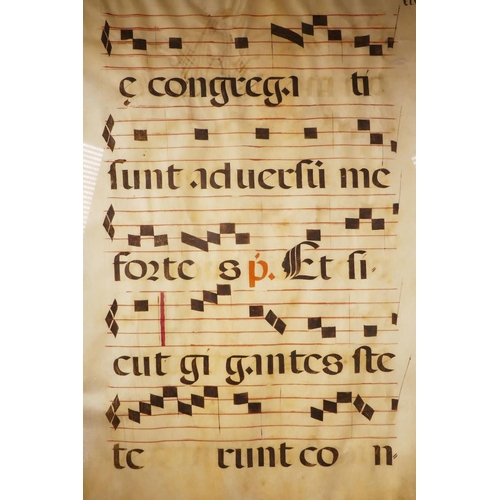 ę congrega ti
sunt aduersū me
forte s p. Et si-
cut gi gantes ste
te runt co n-